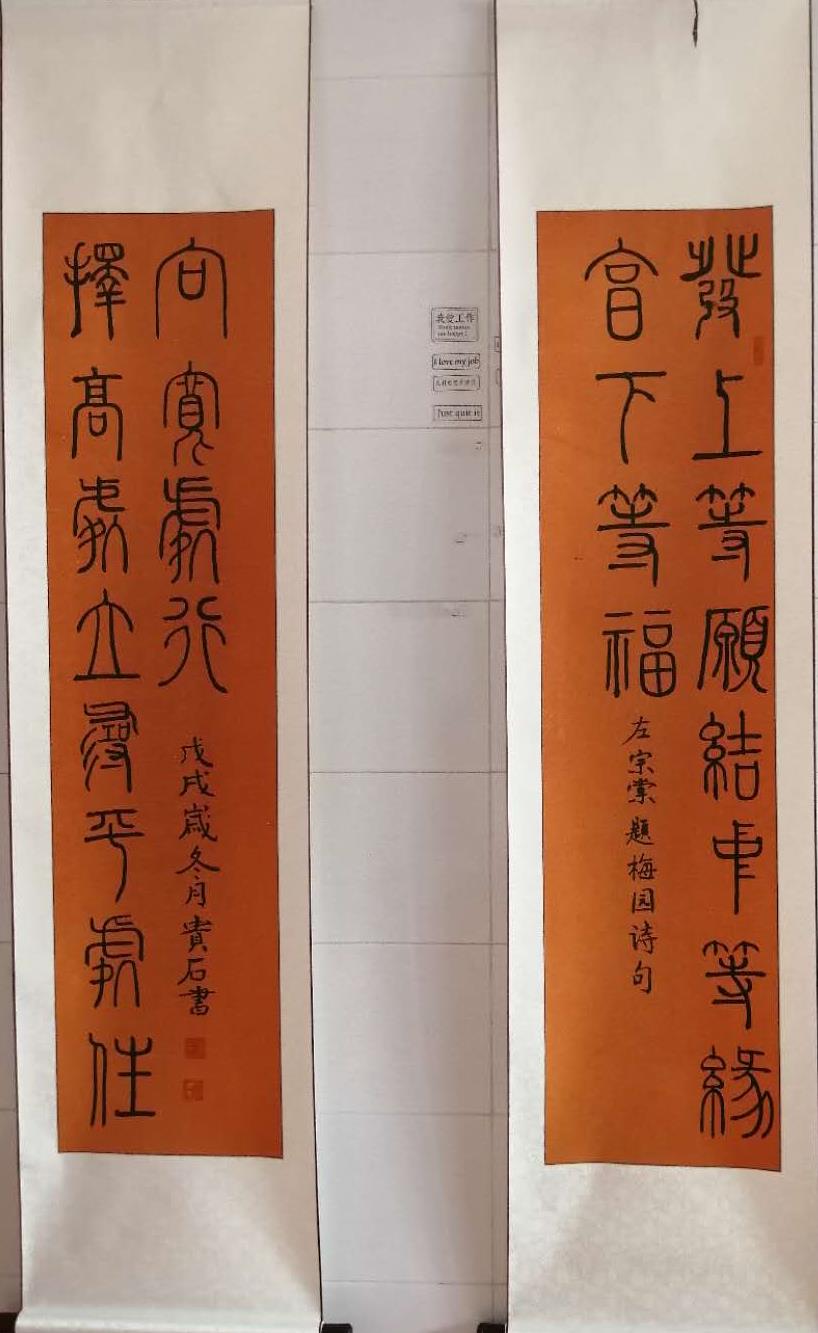 發上等願結中等緣
享下等福
左宗棠題梅园诗句
擇高處立尋平處住
向寬處行
戊戌歲冬月貴石書
我爱工作
Work makes
me happy!
I love my job
Just quit it